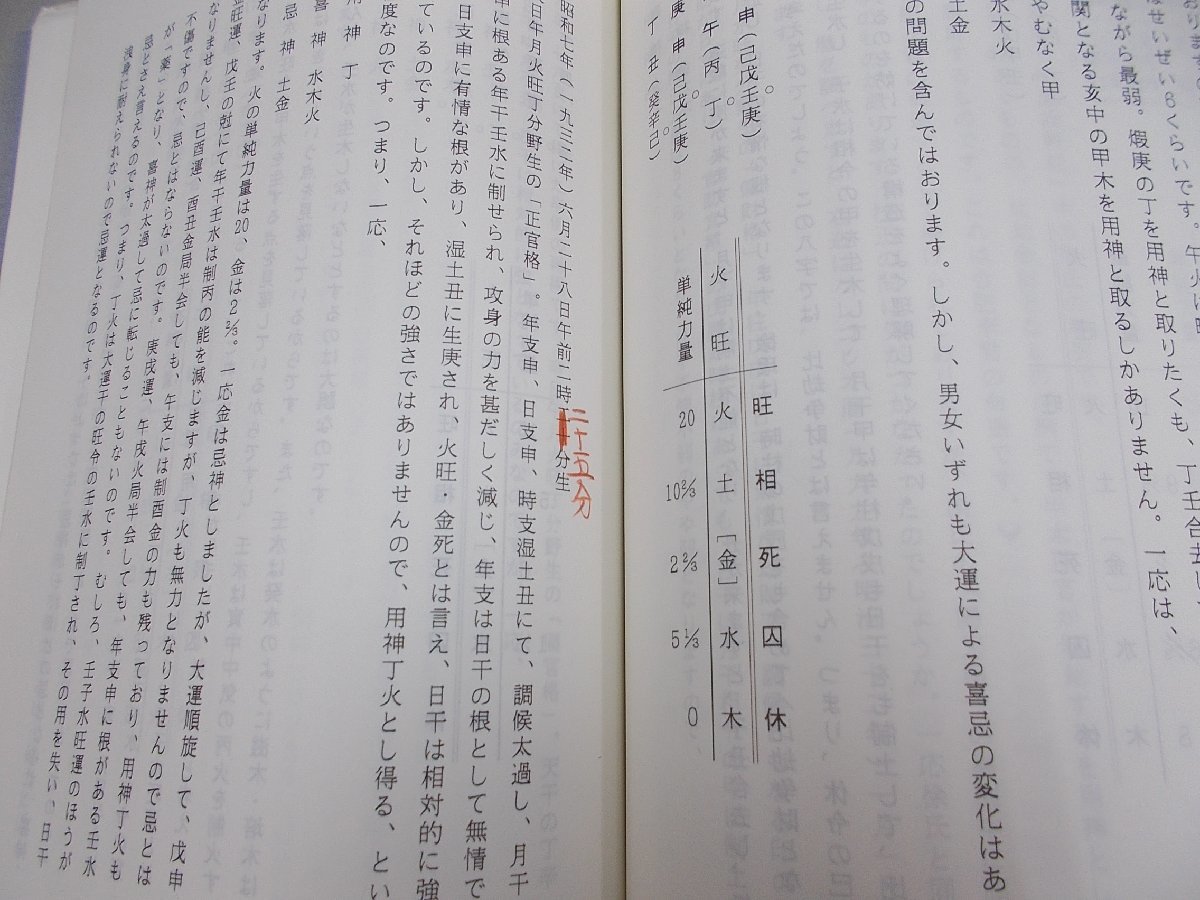 おります。午火に
はせいぜい8くらいです。
ながら最弱。煆庚の丁を用神と取りたくも、丁壬合去し
関となる亥中の甲木を用神と取るしかありません。一応は、
やむなく甲
水木火
土金
の問題を含んではおります。しかし、男女いずれも大運による喜忌の変化はあ
申（己戊壬庚）
午（丙 丁）
庚 申（己戊壬庚）
丁 丑（癸辛己）
旺 相 死 囚 休
火旺 火 土 ［金］ 水 木
単純力量 20 10⅔ 2⅔ 5⅓ 0
昭和七年（一九三二年）六月二十八日午前二時二十五分生
日午月火旺丁分野生の「正官格」。年支申、日支申、時支湿土丑にて、調候太過し、月干
申に根ある年干壬水に制せられ、攻身の力を甚だしく減じ、年支は日干の根として無情で
日支申に有情な根があり、湿土丑に生庚され、火旺・金死とは言え、日干は相対的に強
ているのです。しかし、それほどの強さではありませんので、用神丁火とし得る、とい
度なのです。つまり、一応、
用神 丁
喜神 水木火
忌神 土金
なります。火の単純力量は20、金は2⅔。一応金は忌神としましたが、大運順旋して、戊申
金旺運、戊壬の尅にて年干壬水は制丙の能を減じますが、丁火も無力となりませんので忌とは
なりませんし、己酉運、酉丑金局半会しても、午支には制酉金の力も残っており、用神丁火も
不傷ですので、忌とはならないのです。庚戌運、午戌火局半会しても、年支申に根がある壬水
が「薬」となり、喜神が太過して忌に転じることもないのです。むしろ、壬子水旺運のほうが
忌とさえ言えるのです。つまり、丁火は大運干の旺令の壬水に制丁され、その用を失い、日干
洩身に耐えられないので忌運となるのです。